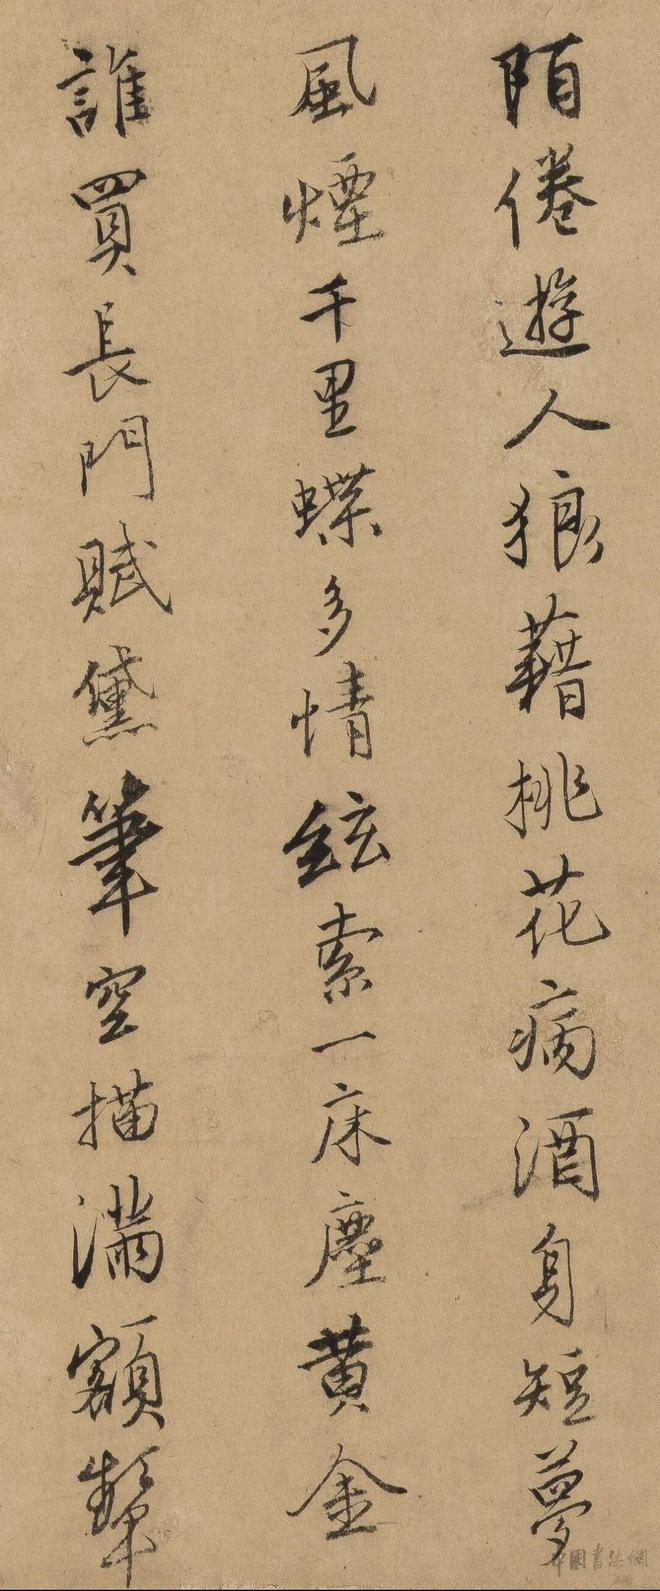 陌倦遊人狼藉桃花病酒身短夢
風煙千里蝶多情絃索一床塵黄金
誰買長門賦黛筆空描滿額顰
中國書法網